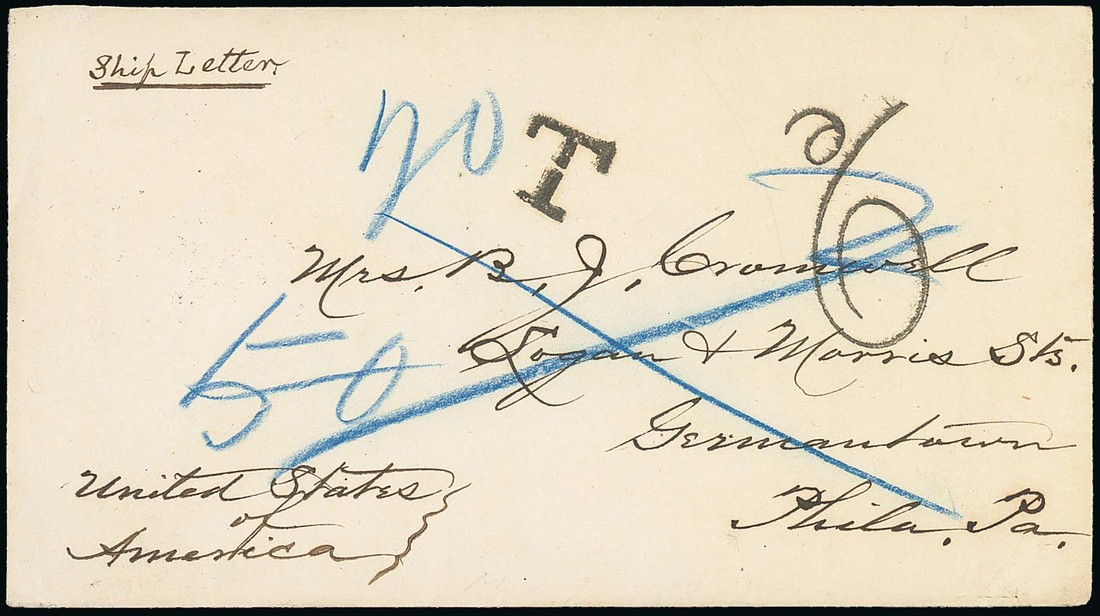 Ship Letter.
20
T
Mrs. B. J. Cromwell
Logan & Morris Sts.
50
Germantown
United States
of
America
Phila. Pa.